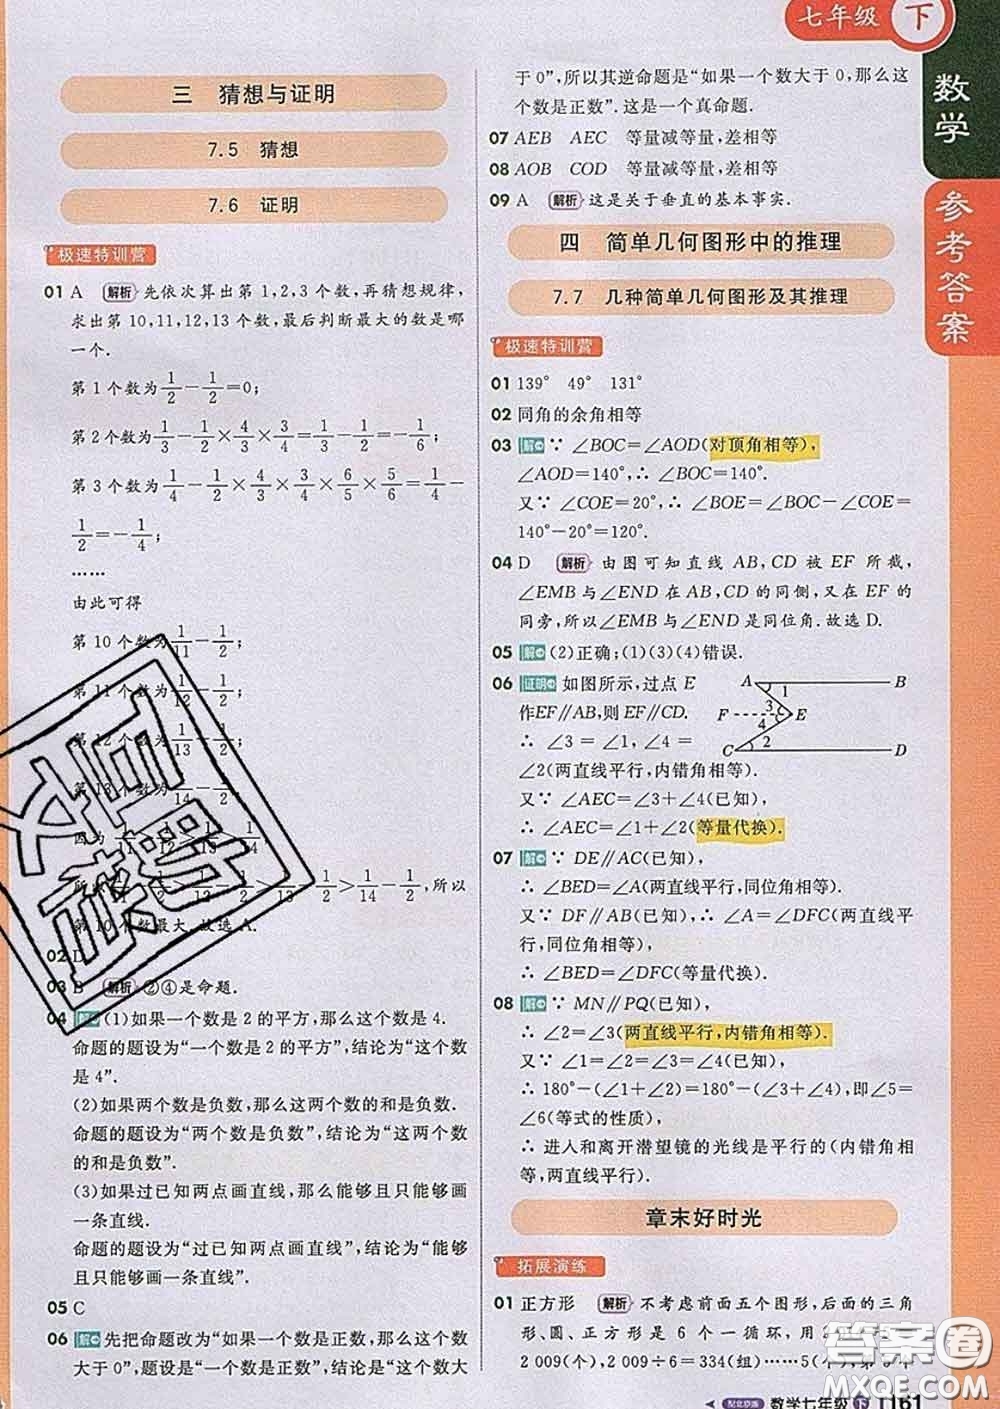 七年级 下
数学
参考答案
三 猜想与证明
7.5 猜想
7.6 证明
极速特训营
01 A 解析 先依次算出第 1,2,3 个数,再猜想规律,
求出第 10,11,12,13 个数,最后判断最大的数是哪
一个.
第 1 个数为 1/2 - 1/2 = 0;
第 2 个数为 1/3 - 1/2 × 4/3 × 3/4 = 1/3 - 1/2 = - 1/6;
第 3 个数为 1/4 - 1/2 × 4/3 × 3/4 × 6/5 × 5/6 = 1/4 -
1/2 = - 1/4;
……
由此可得
第 10 个数为 1/11 - 1/2;
第 11 个数为 1/12 - 1/2;
第 12 个数为 1/13 - 1/2;
第 13 个数为 1/14 - 1/2,
因为 1/11 > 1/12 > 1/13 > 1/14,
所以 1/11 - 1/2 > 1/12 - 1/2 > 1/13 - 1/2 > 1/14 - 1/2,所以
第 10 个数最大.故选 A.
02 D
03 B 解析 ②④是命题.
04 解 (1)如果一个数是 2 的平方,那么这个数是 4.
命题的题设为“一个数是 2 的平方”,结论为“这个数
是 4”.
(2)如果两个数是负数,那么这两个数的和是负数.
命题的题设为“两个数是负数”,结论为“这两个数
的和是负数”.
(3)如果过已知两点画直线,那么能够且只能够画
一条直线.
命题的题设为“过已知两点画直线”,结论为“能够
且只能够画一条直线”.
05 C
06 解 先把命题改为“如果一个数是正数,那么这个数
大于 0”,题设是“一个数是正数”,结论是“这个数大
于 0”,所以其逆命题是“如果一个数大于 0,那么这
个数是正数”.这是一个真命题.
07 AEB AEC 等量减等量,差相等
08 AOB COD 等量减等量,差相等
09 A 解析 这是关于垂直的基本事实.
四 简单几何图形中的推理
7.7 几种简单几何图形及其推理
极速特训营
01 139° 49° 131°
02 同角的余角相等
03 解 ∵ ∠BOC=∠AOD(对顶角相等),
∠AOD=140°,∴ ∠BOC=140°.
又∵ ∠COE=20°,∴ ∠BOE=∠BOC-∠COE=
140°-20°=120°.
04 D 解析 由图可知直线 AB,CD 被 EF 所截,
∠EMB与∠END在AB,CD的同侧,又在EF的
同旁,所以∠EMB与∠END是同位角.故选 D.
05 解 (2)正确;(1)(3)(4)错误.
06 证明 如图所示,过点 E
作EF∥AB,则EF∥CD.
∴ ∠3 = ∠1, ∠4 =
∠2(两直线平行,内错角相等).
又∵ ∠AEC=∠3+∠4(已知),
∴ ∠AEC=∠1+∠2(等量代换).
A B 1 3 F E 4 2 C D
07 解 ∵ DE∥AC(已知),
∴ ∠BED=∠A(两直线平行,同位角相等).
又∵ DF∥AB(已知),∴ ∠A=∠DFC(两直线平
行,同位角相等),
∴ ∠BED=∠DFC(等量代换).
08 解 ∵ MN∥PQ(已知),
∴ ∠2=∠3(两直线平行,内错角相等).
又∵ ∠1=∠2=∠3=∠4(已知),
∴ 180°-(∠1+∠2)=180°-(∠3+∠4),即∠5=
∠6(等式的性质),
∴ 进入和离开潜望镜的光线是平行的(内错角相
等,两直线平行).
章末好时光
拓展演练
01 正方形 解析 不考虑前面五个图形,后面的三角
形、圆、正方形是 6 个一循环,用
2 009(个),2 009÷6=334(组)……5(个),第 5 个
配北京版 数学七年级 下 161
答案卷
MXQE.COM